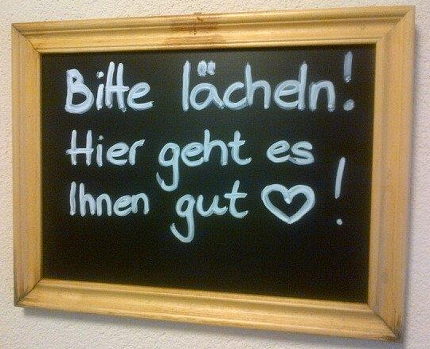 Bitte lächeln!
Hier geht es
Ihnen gut ♡!